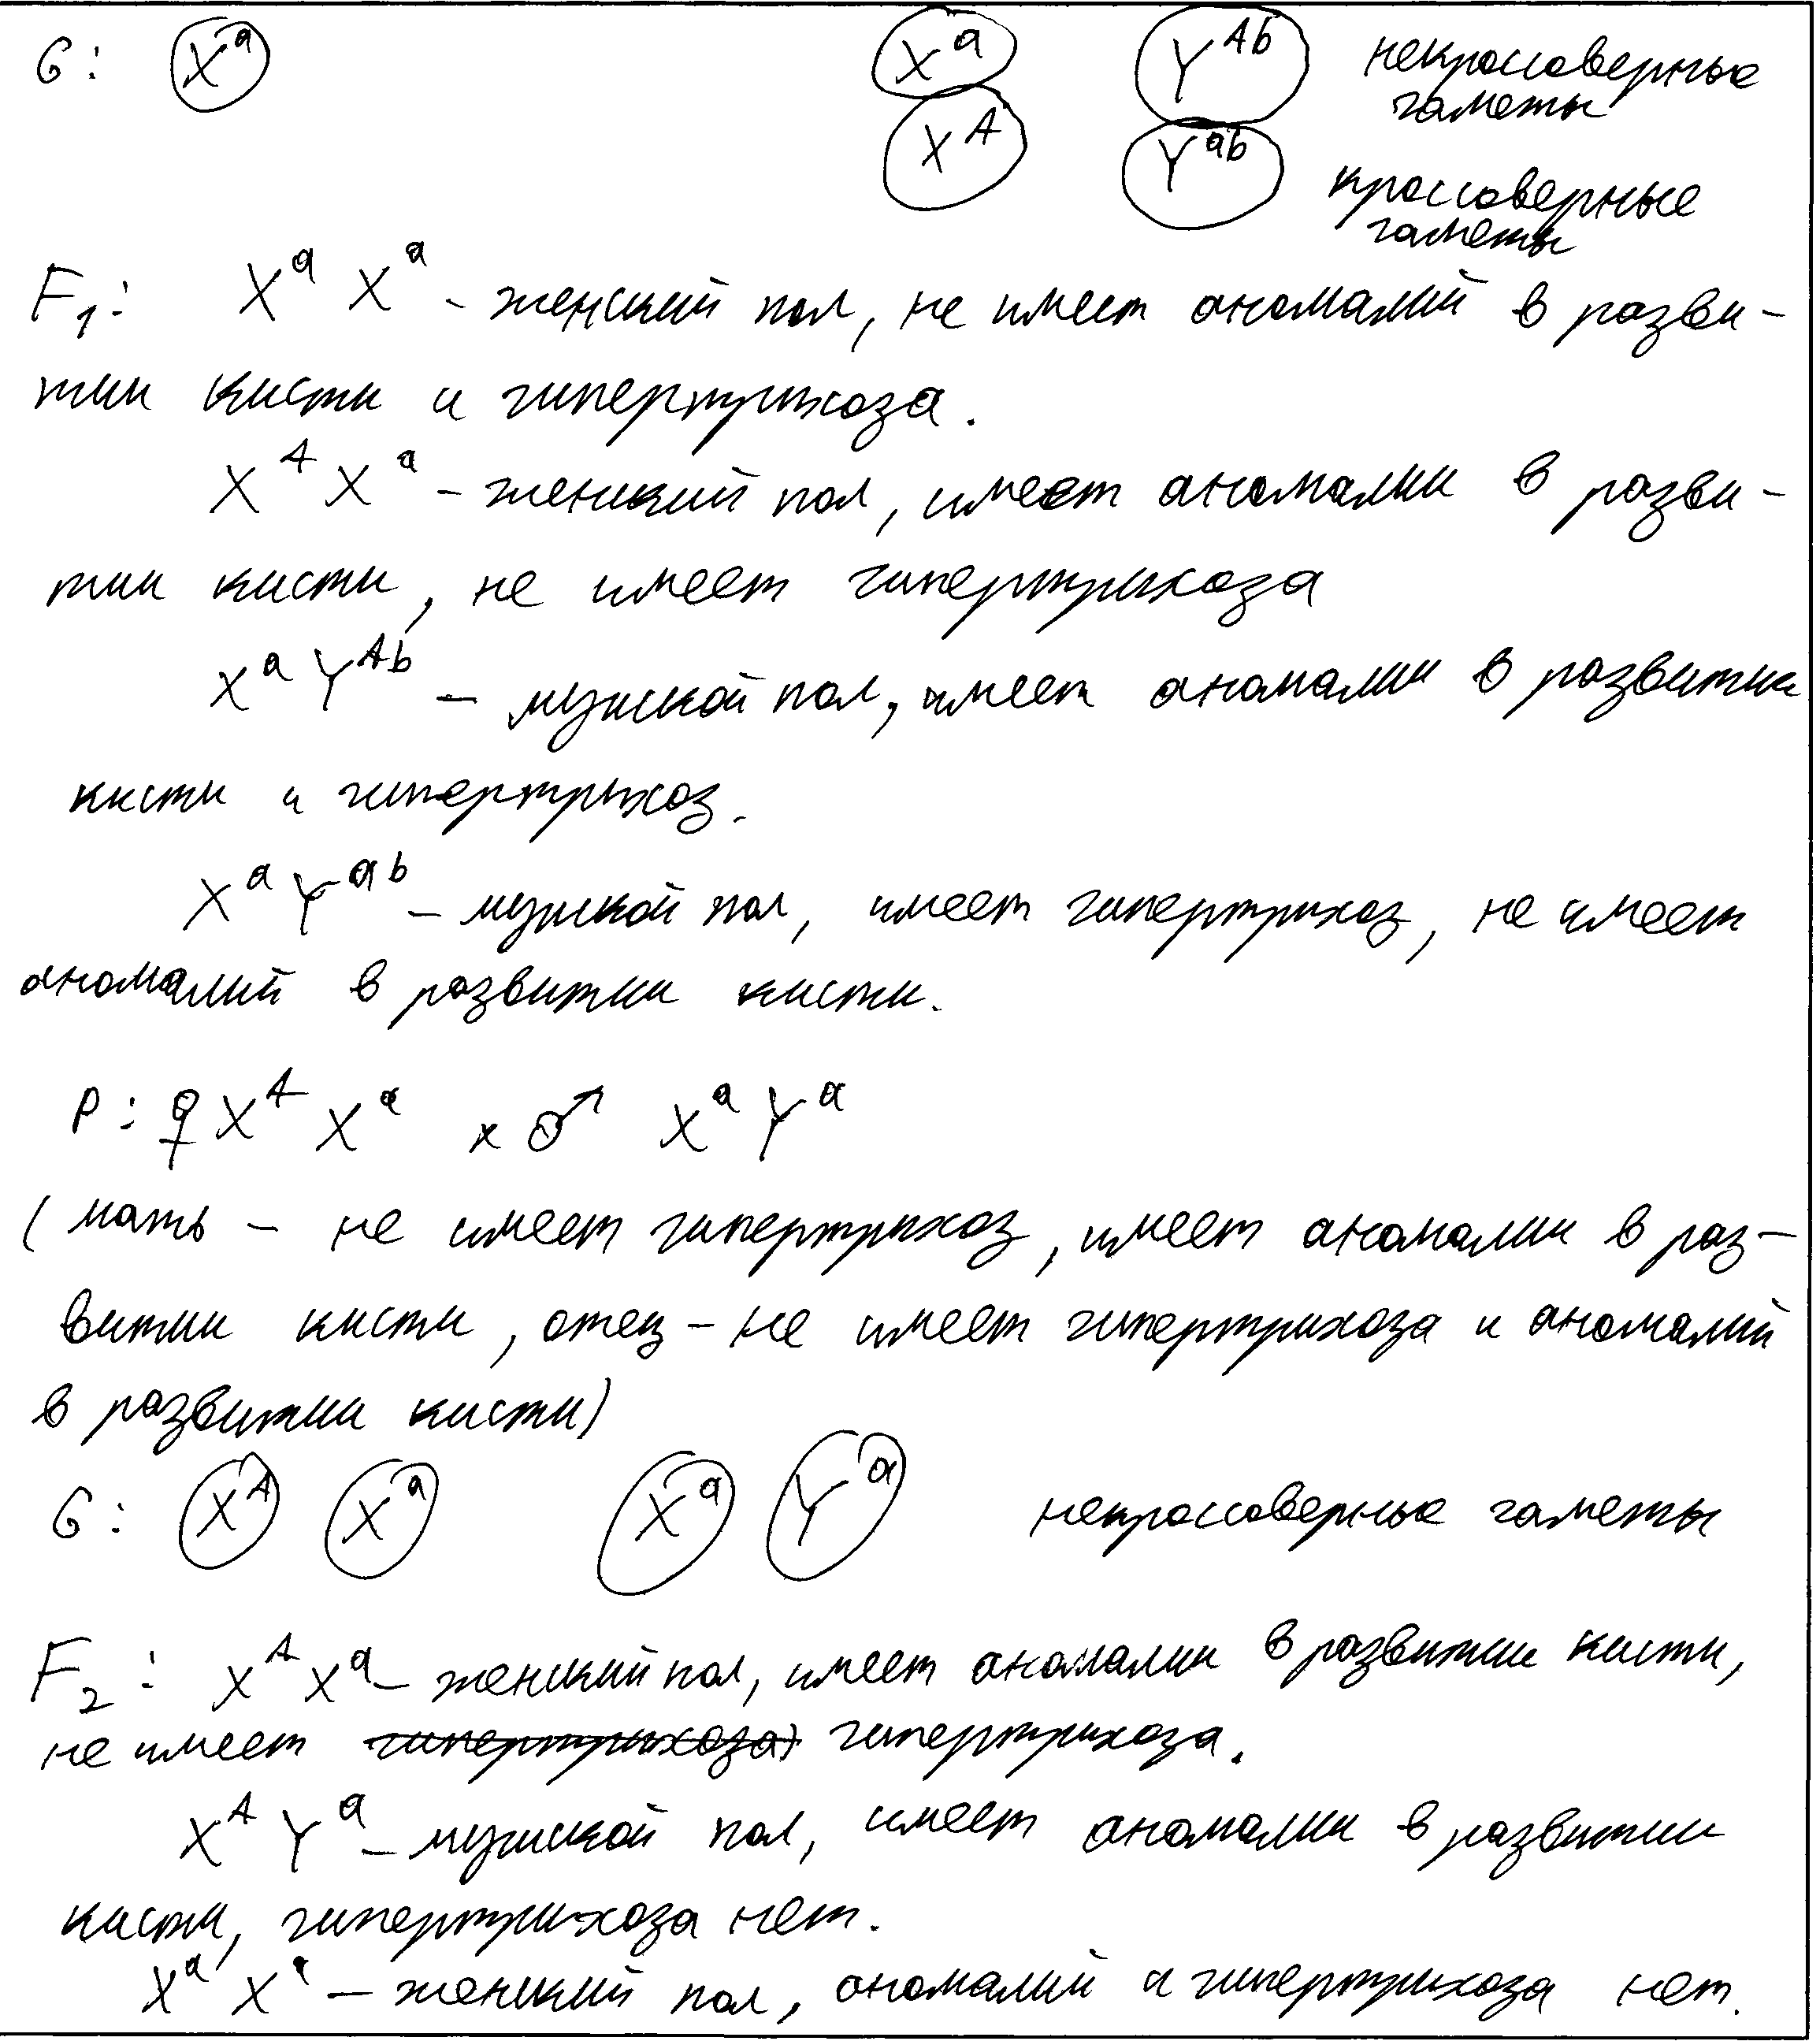 G: Xᵃ Xᵃ Yᴬᵇ некроссоверные
гаметы
Xᴬ Yᵃᵇ кроссоверные
гаметы
F₁: Xᵃ Xᵃ - женский пол, не имеет аномалий в разви-
тии кисти и гипертрихоза.
Xᴬ Xᵃ - женский пол, имеет аномалии в разви-
тии кисти, не имеет гипертрихоза
Xᵃ Yᴬᵇ - мужской пол, имеет аномалии в развитии
кисти и гипертрихоз.
Xᵃ Yᵃᵇ - мужской пол, имеет гипертрихоз, не имеет
аномалий в развитии кисти.
P: ♀ Xᴬ Xᵃ x ♂ Xᵃ Yᵃ
(мать - не имеет гипертрихоз, имеет аномалии в раз-
витии кисти, отец - не имеет гипертрихоза и аномалий
в развитии кисти)
G: Xᴬ Xᵃ Xᵃ Yᵃ некроссоверные гаметы
F₂: Xᴬ Xᵃ - женский пол, имеет аномалии в развитии кисти,
не имеет гипертрихоза) гипертрихоза.
Xᴬ Yᵃ - мужской пол, имеет аномалии в развитии
кисти, гипертрихоза нет.
Xᵃ Xᵃ - женский пол, аномалий и гипертрихоза нет.